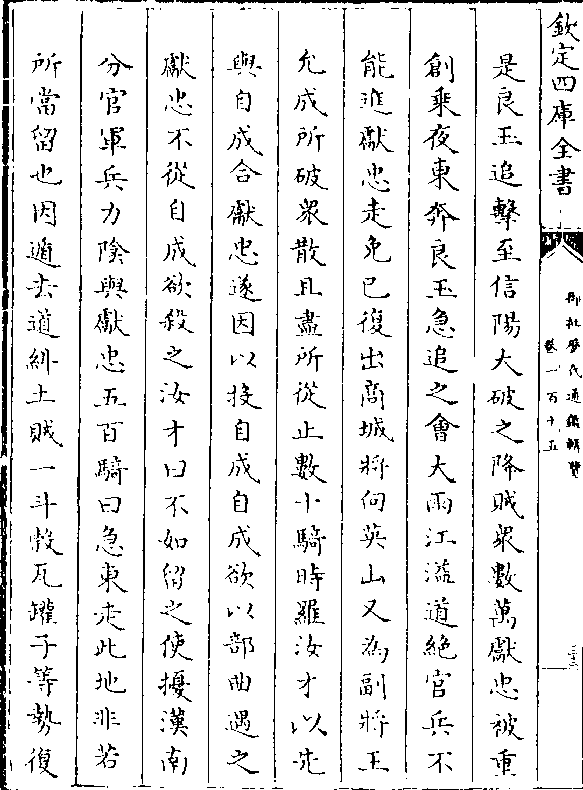 欽定四庫全書
御批歷代通鑑輯覽
卷一百十五
是良玉追擊至信陽大破之降賊眾數萬獻忠被重
創乘夜東奔良玉急追之會大雨江溢道絕官兵不
能進獻忠走免已復出商城將向英山又為副將王
允成所破眾散且盡所從止數十騎時羅汝才以先
與自成合獻忠遂因以投自成自成欲以部曲遇之
獻忠不從自成欲殺之汝才曰不如留之使擾漢南
分官軍兵力陰與獻忠五百騎曰急東走此地非若
所當留也因遁去道糾土賊一斗榖瓦罐子等勢復